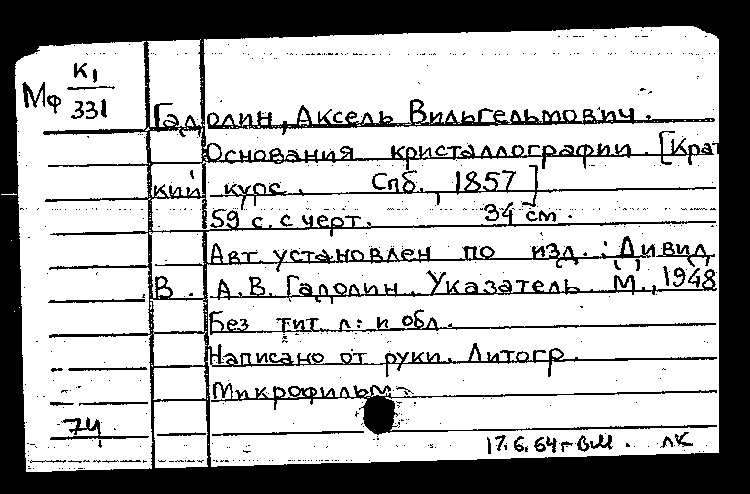 Мф К1
331
Гадолин, Аксель Вильгельмович.
Основания кристаллографии. [Крат
кий курс. Спб., 1857]
59 с. с черт. 34 см.
Авт. установлен по изд.: Дивид
В. А.В. Гадолин. Указатель. М., 1948
Без тит. л. и обл.
Написано от руки. Литогр.
Микрофильм
74
17.6.64г лк